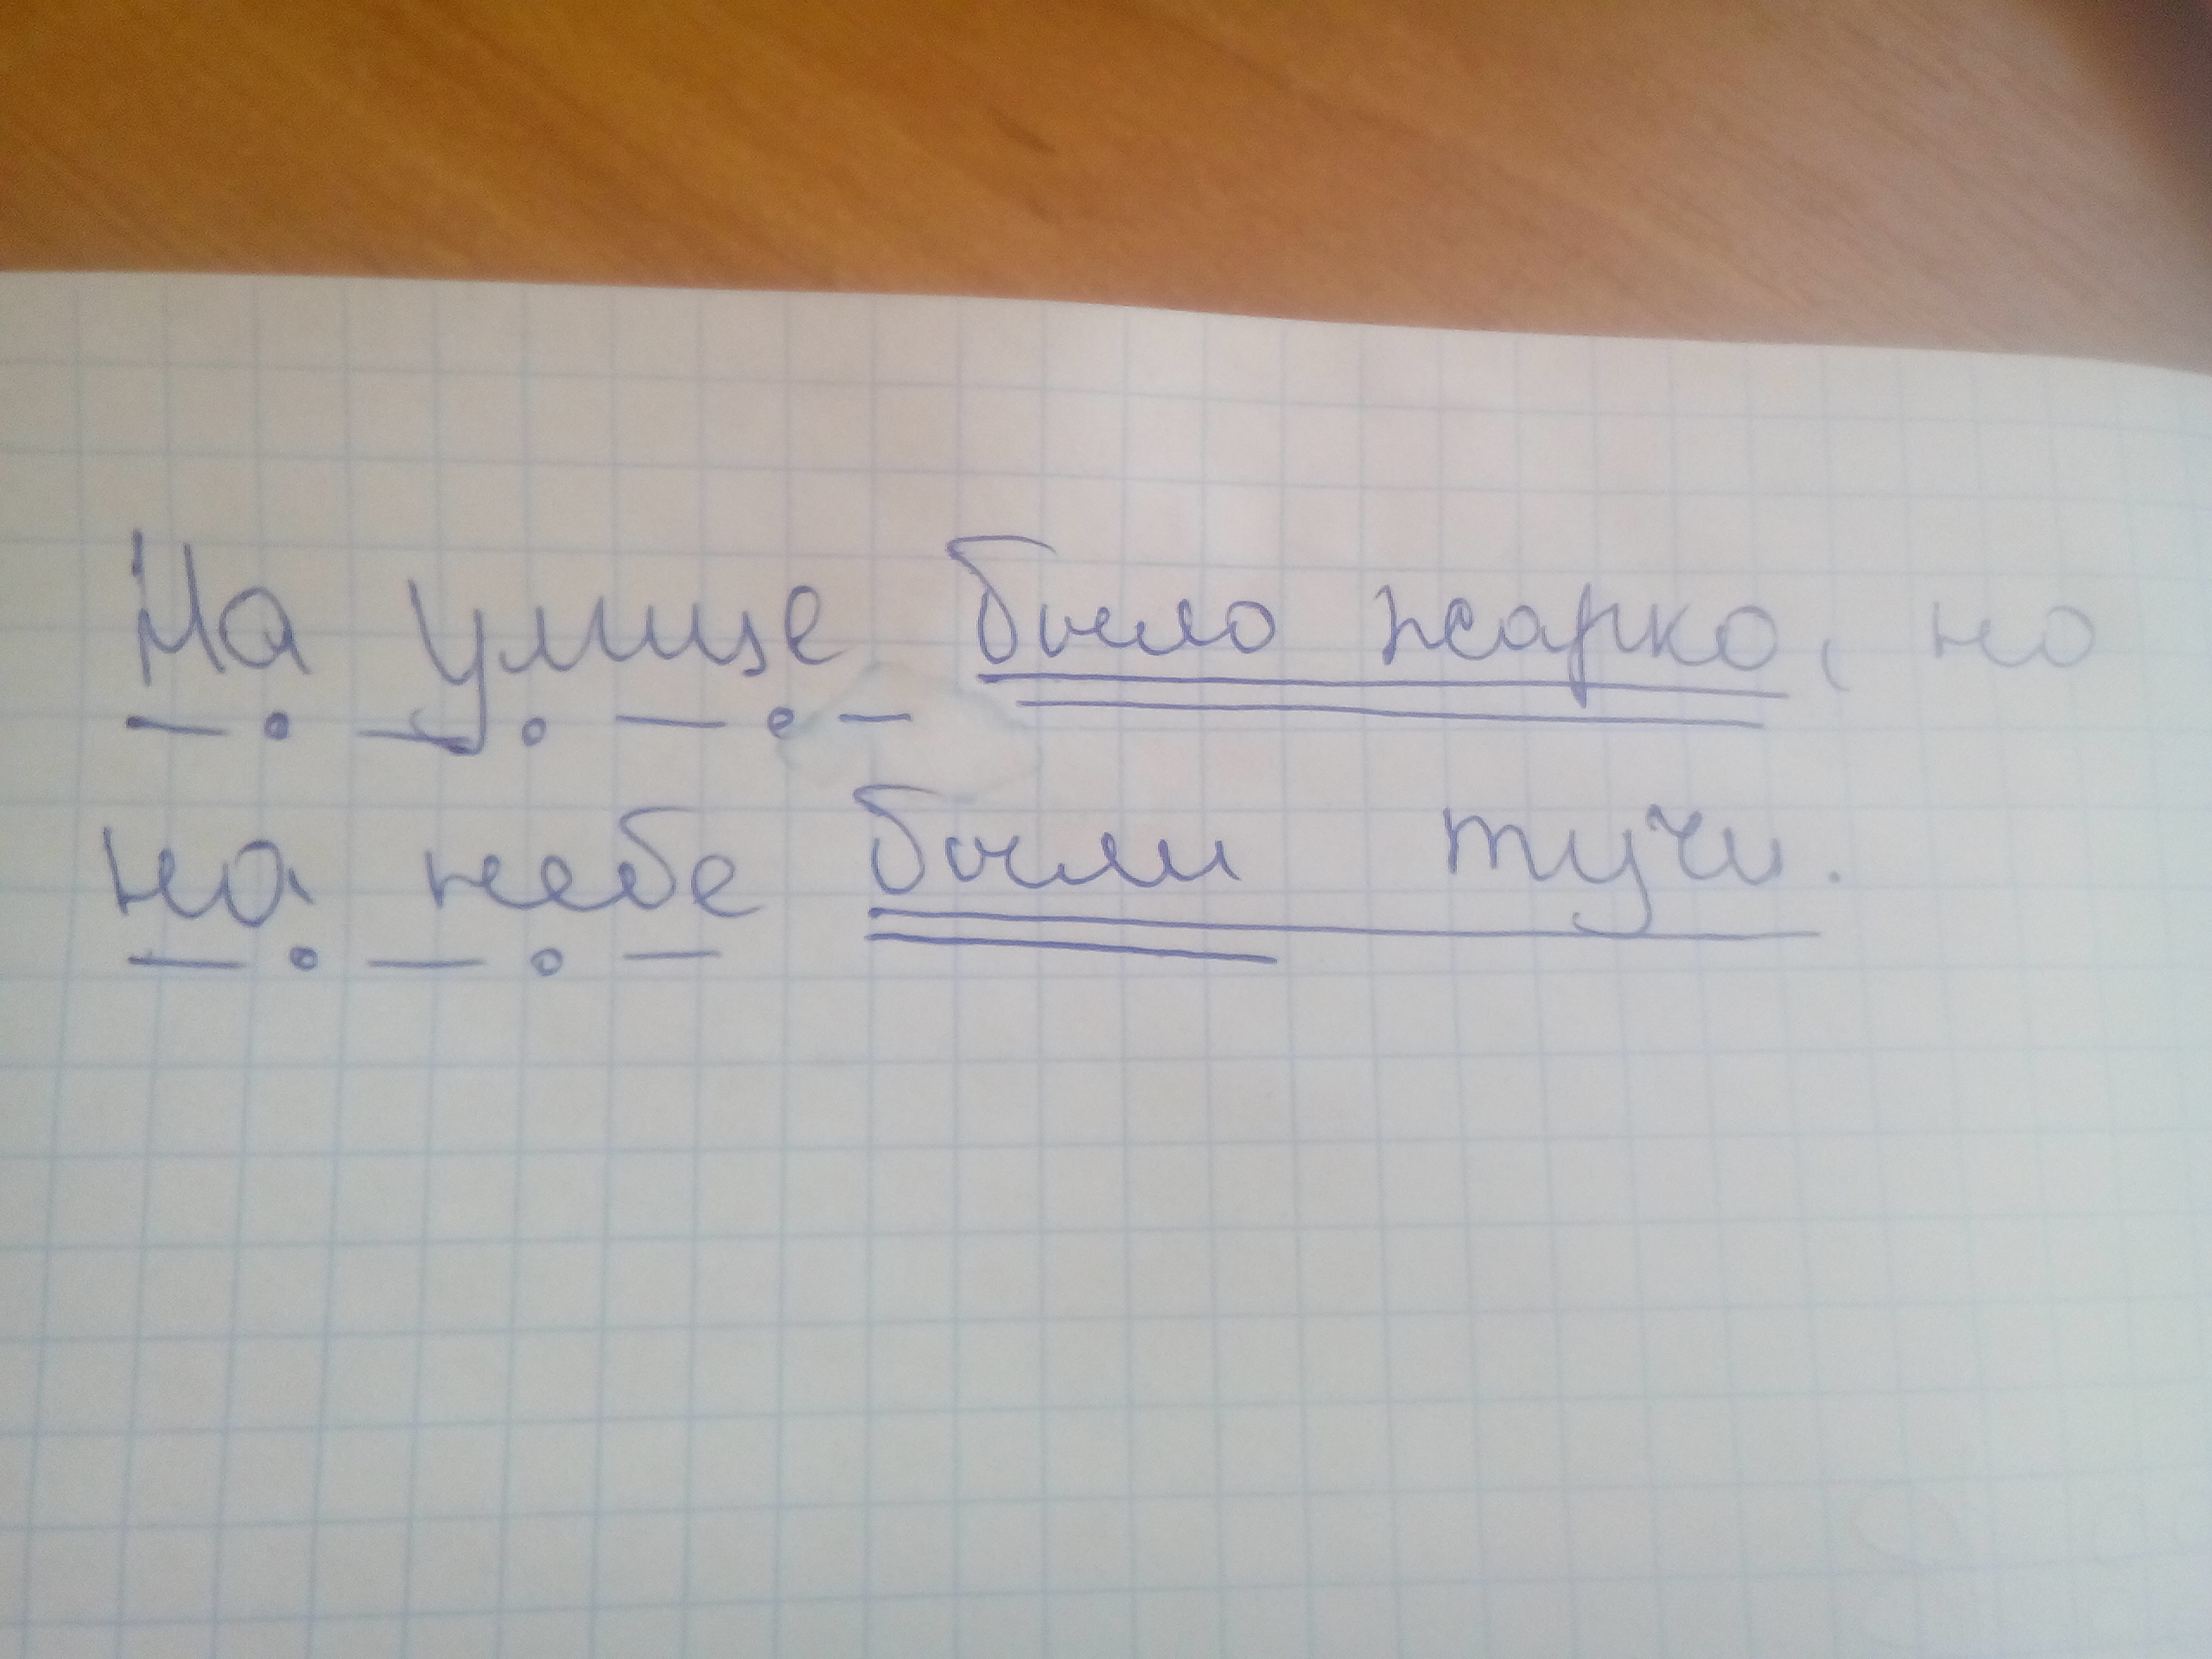 На улице было жарко, но
на небе были тучи.